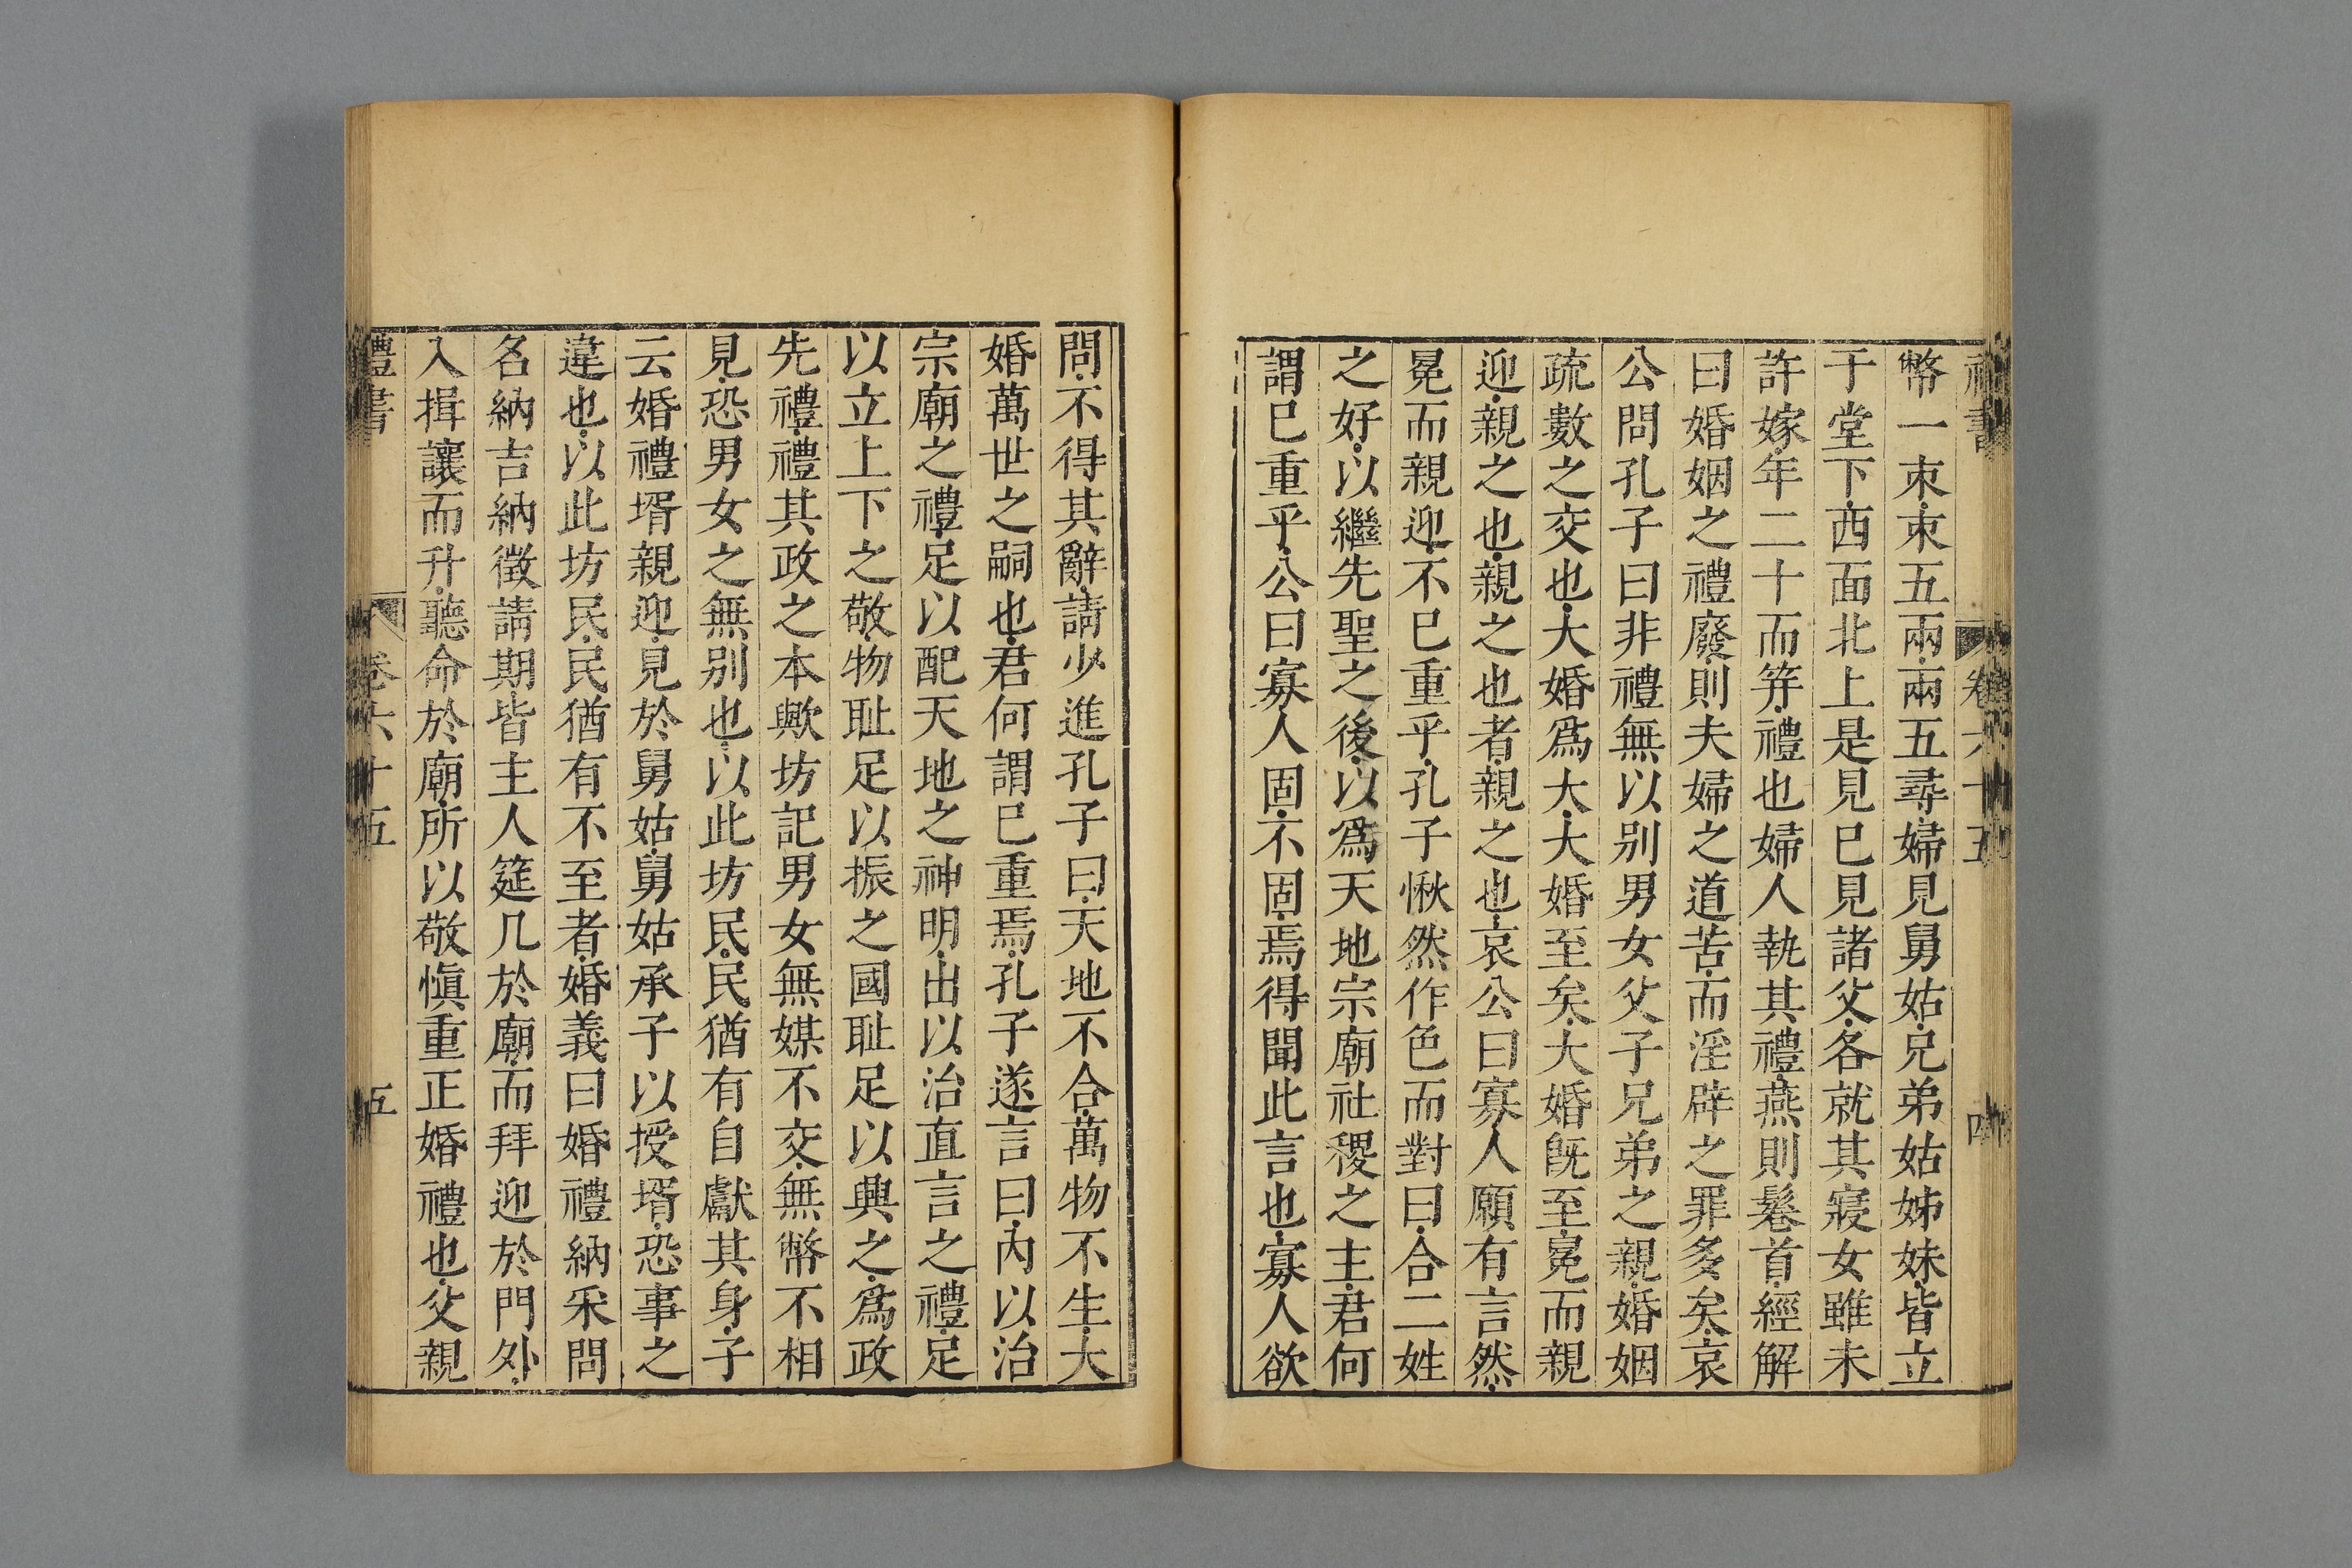 禮書 卷六十五 四
幣一束束五兩兩五尋婦見舅姑兄弟姑姊妹皆立
于堂下西面北上是見已見諸父各就其寢女雖未
許嫁年二十而笄禮也婦人執其禮燕則鬈首經解
曰婚姻之禮廢則夫婦之道苦而淫辟之罪多矣哀
公問孔子曰非禮無以别男女父子兄弟之親婚姻
疏數之交也大婚爲大大婚至矣大婚旣至冕而親
迎親之也親之也者親之也哀公曰寡人願有言然
冕而親迎不已重乎孔子愀然作色而對曰合二姓
之好以繼先聖之後以爲天地宗廟社稷之主君何
謂已重乎公曰寡人固不固焉得聞此言也寡人欲
問不得其辭請少進孔子曰天地不合萬物不生大
婚萬世之嗣也君何謂已重焉孔子遂言曰內以治
宗廟之禮足以配天地之神明出以治直言之禮足
以立上下之敬物耻足以振之國耻足以興之爲政
先禮禮其政之本歟坊記男女無媒不交無幣不相
見恐男女之無别也以此坊民民猶有自獻其身子
云婚禮壻親迎見於舅姑舅姑承子以授壻恐事之
違也以此坊民民猶有不至者婚義曰婚禮納采問
名納吉納徵請期皆主人筵几於廟而拜迎於門外
入揖讓而升聽命於廟所以敬愼重正婚禮也父親
禮書 卷六十五 五